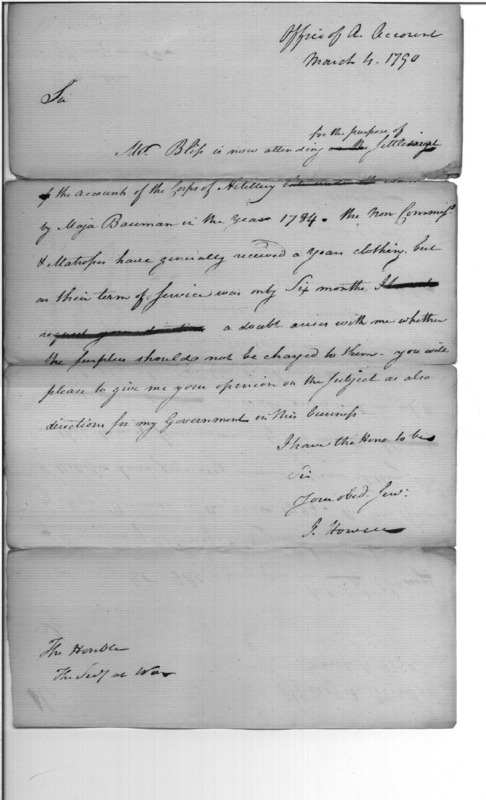 Office of A. Account
March 4. 1790
Sir
Mr. Bliss is now attending for the purpose of settlement
of the accounts of the Corps of Artillery
by Major Bauman in the year 1784. the Non Commiss.
& Matrosses have generally received a years clothing, but
as their term of service was only Six months.
a doubt arises with me whether
the surplus should not be charged to them. you will
please to give me your opinion on the subject as also
directions for my Government in this business.
I have the Honor to be
Sir
Your obed. Serv.
J. Howell
The Honble
The Secy at War